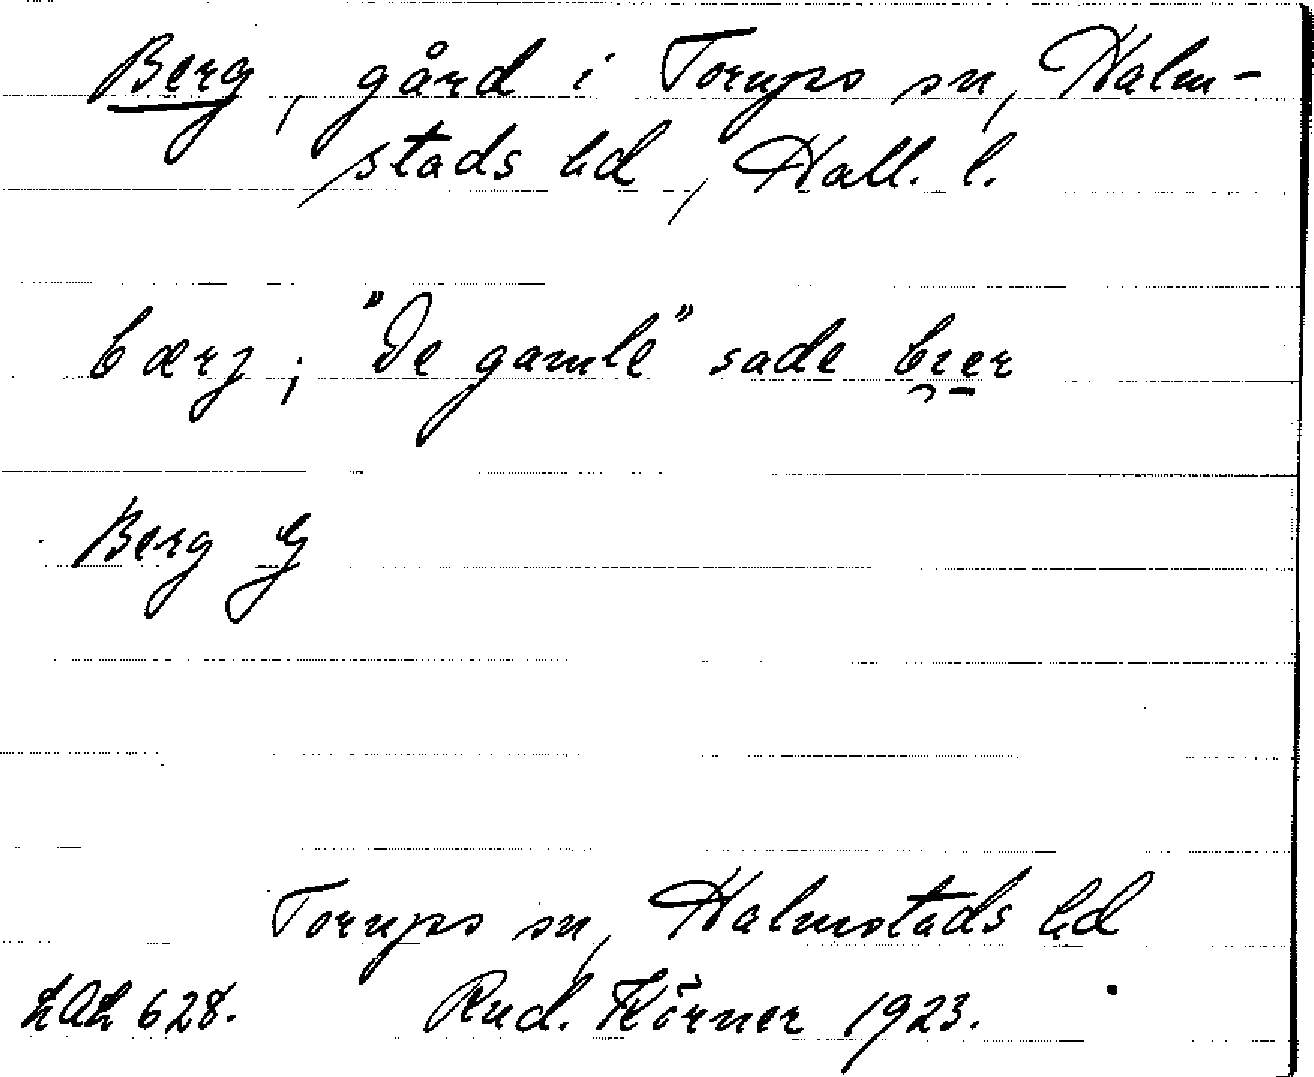 Berg, gård i Torups sn, Halm-
stads hd, Hall. l.
bærj; "De gamle" sade bier
Berg G
Torups sn, Halmstads hd
LAL 628. Rud. Körner 1923.